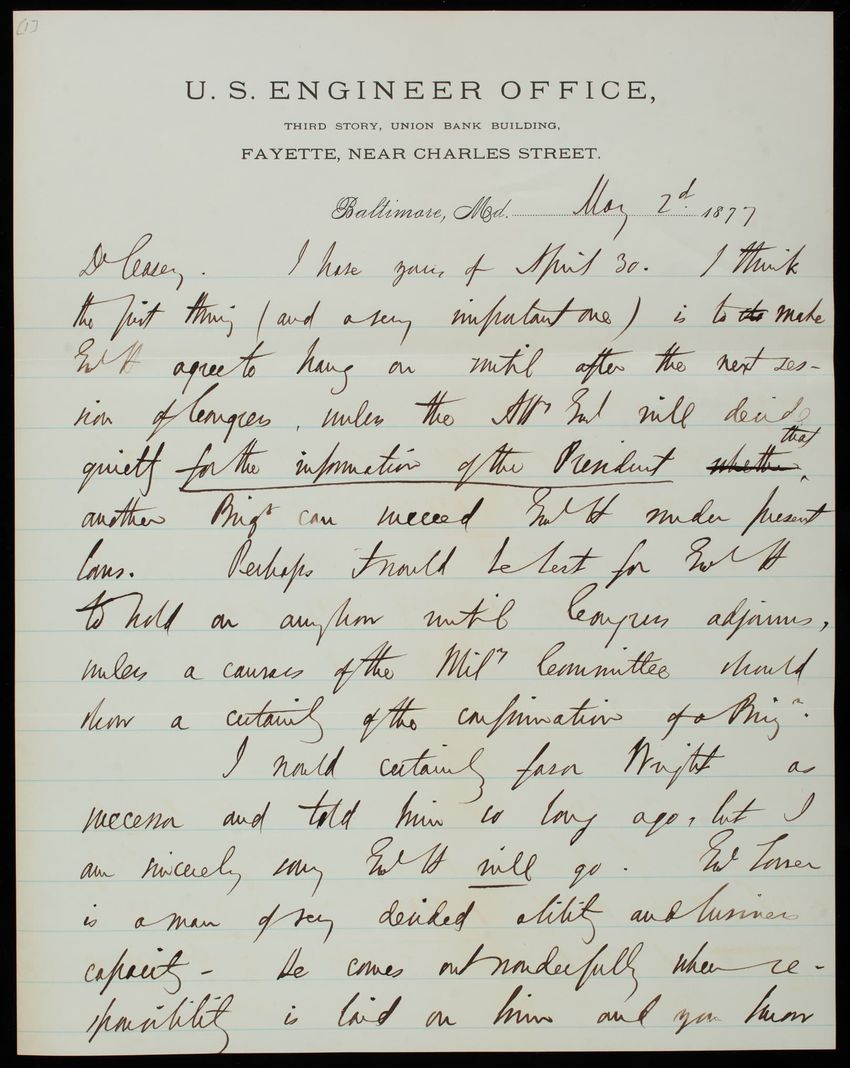 [1]
U. S. ENGINEER OFFICE,
THIRD STORY, UNION BANK BUILDING,
FAYETTE, NEAR CHARLES STREET.
Baltimore, Md. May 2d 1877
Dr Casey. I have yours of April 30. I think
the first thing (and a very important one) is to make
Genl H agree to hang on until after the next ses-
sion of Congress, unless the Atty Genl will decide
quietly for the information of the President whether that
another Brigr can succeed Genl H under present
laws. Perhaps t'would be best for Genl H
to hold on anyhow until Congress adjourns,
unless a canvass of the Mily Committee should
show a certainty of the confirmation of a Brigr.
I would certainly favor Wright as
successor and told him so long ago, but I
am sincerely sorry Genl H will go. Genl Tower
is a man of very decided ability and business
capacity - He comes out wonderfully when re-
sponsibility is laid on him and you know